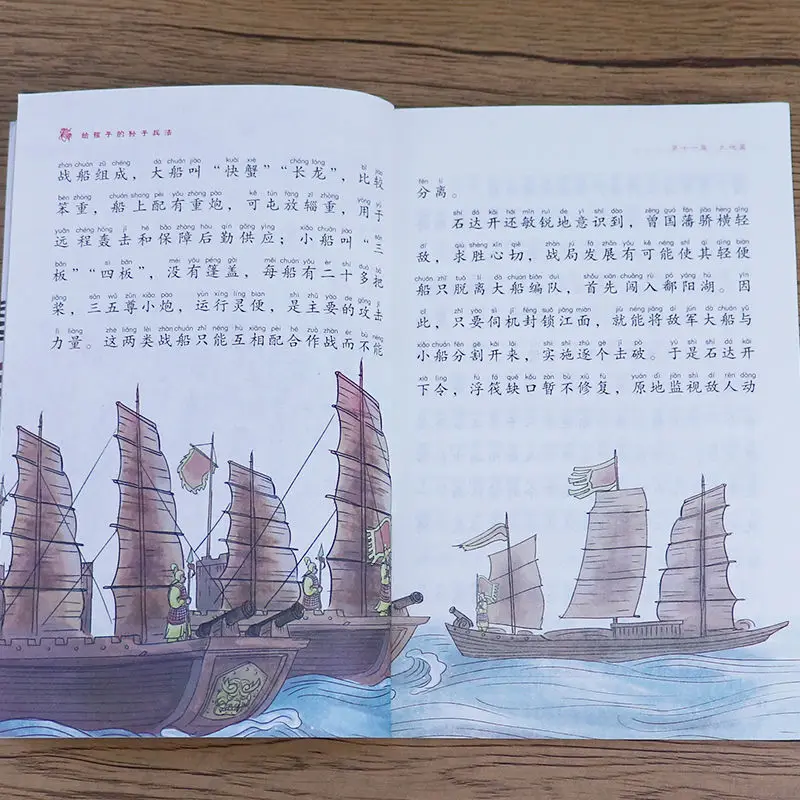 给孩子的孙子兵法
zhàn chuán zǔ chéng dà chuán jiào kuài xiè cháng lóng bǐ jiào
战船组成，大船叫“快蟹”“长龙”，比较
bèn zhòng chuán shàng pèi yǒu zhòng pào kě tún fàng zī zhòng yòng yú
笨重，船上配有重炮，可屯放辎重，用于
yuǎn chéng hōng jī hé bǎo zhàng hòu qín gōng yìng xiǎo chuán jiào sān
远程轰击和保障后勤供应；小船叫“三
bǎn sì bǎn méi yǒu péng gài měi chuán yǒu èr shí duō bǎ
板”“四板”，没有蓬盖，每船有二十多把
jiǎng sān wǔ zūn xiǎo pào yùn xíng líng biàn shì zhǔ yào de gōng jī
桨，三五尊小炮，运行灵便，是主要的攻击
lì liàng zhè liǎng lèi zhàn chuán zhǐ néng hù xiāng pèi hé zuò zhàn ér bù néng
力量。这两类战船只能互相配合作战而不能
第十一篇 九地篇
fēn lí
分离。
shí dá kāi hái mǐn ruì de yì shí dào zēng guó fān jiāo hèng qīng
石达开还敏锐地意识到，曾国藩骄横轻
dí qiú shèng xīn qiè zhàn jú fā zhǎn yǒu kě néng shǐ qí qīng biàn
敌，求胜心切，战局发展有可能使其轻便
chuán zhī tuō lí dà chuán biān duì shǒu xiān chuǎng rù pó yáng hú yīn
船只脱离大船编队，首先闯入鄱阳湖。因
cǐ zhǐ yào sì jī fēng suǒ jiāng miàn jiù néng jiāng dí jūn dà chuán yǔ
此，只要伺机封锁江面，就能将敌军大船与
xiǎo chuán fēn gē kāi lái shí shī zhú gè jī pò yú shì shí dá kāi
小船分割开来，实施逐个击破。于是石达开
xià lìng fú fá quē kǒu zàn bù xiū fù yuán dì jiān shì dí rén dòng
下令，浮筏缺口暂不修复，原地监视敌人动